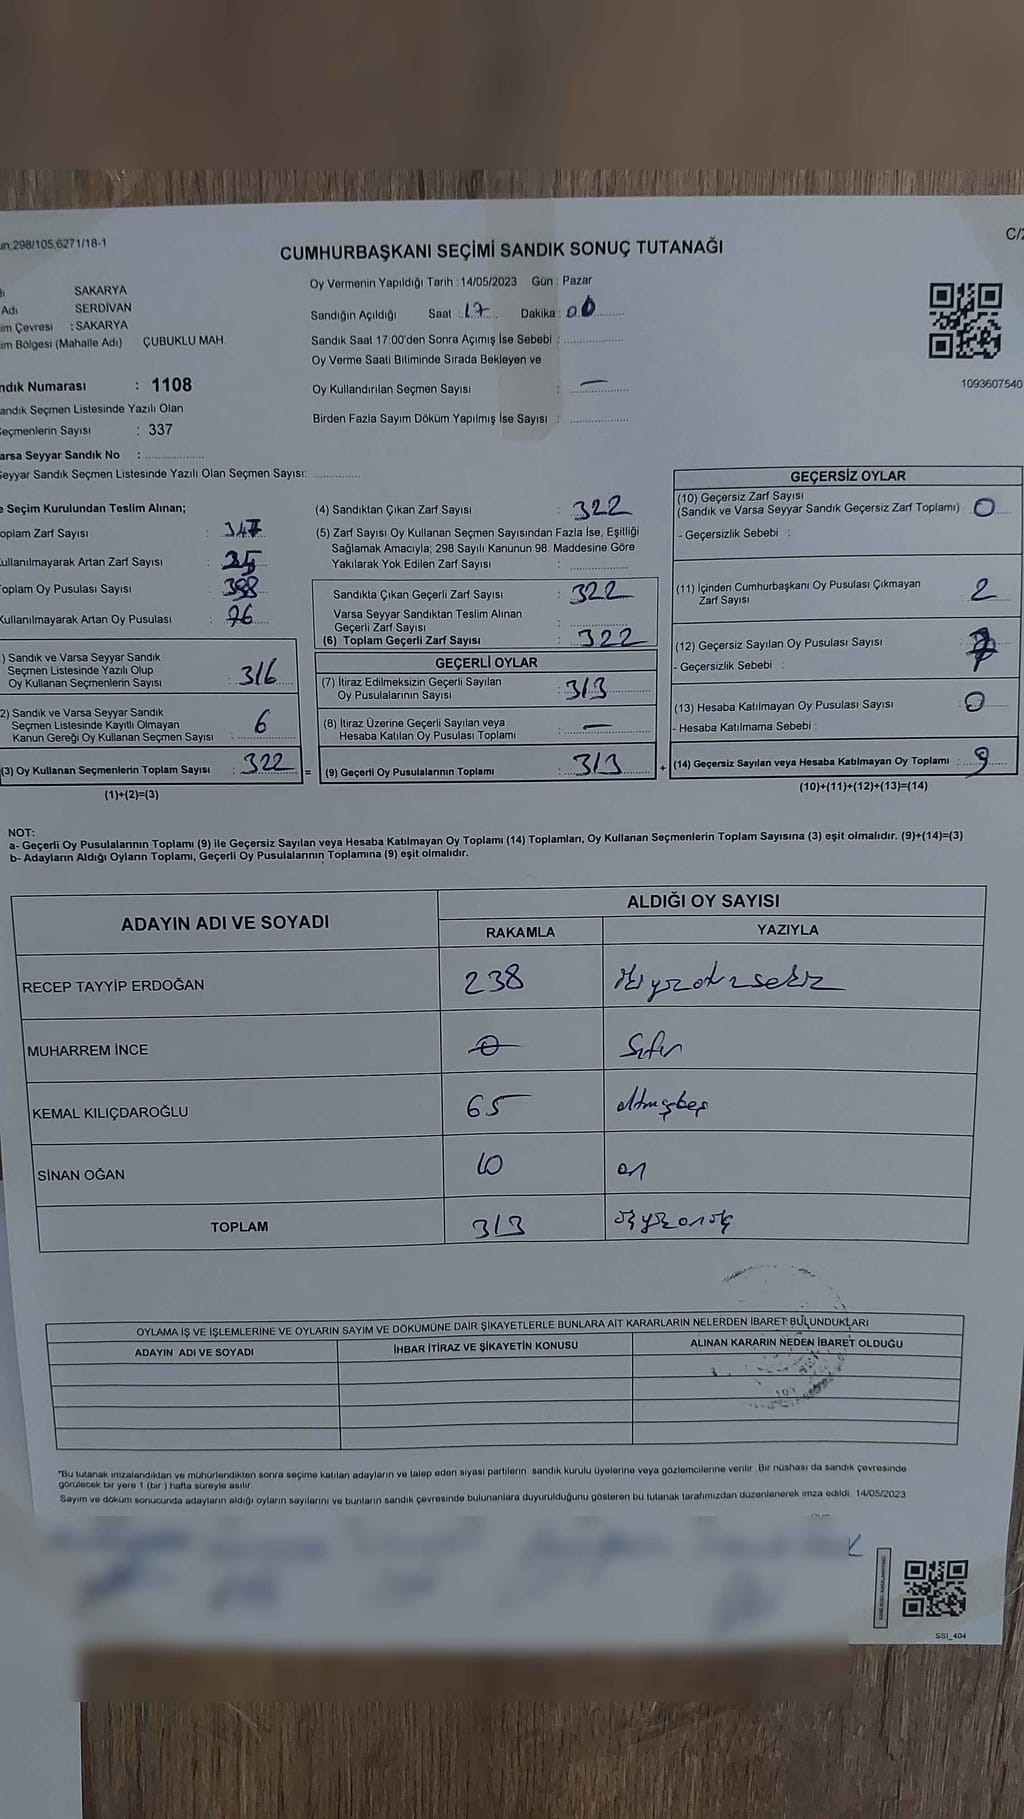 298/105,6271/18-1
C/2
CUMHURBAŞKANI SEÇİMİ SANDIK SONUÇ TUTANAĞI
SAKARYA
Adı SERDİVAN
im Çevresi : SAKARYA
im Bölgesi (Mahalle Adı) ÇUBUKLU MAH.
ndık Numarası : 1108
andık Seçmen Listesinde Yazılı Olan
eçmenlerin Sayısı : 337
arsa Seyyar Sandık No :
eyyar Sandık Seçmen Listesinde Yazılı Olan Seçmen Sayısı:
Oy Vermenin Yapıldığı Tarih : 14/05/2023 Gün : Pazar
Sandığın Açıldığı Saat : 17 Dakika : 00
Sandık Saat 17:00'den Sonra Açımış İse Sebebi :
Oy Verme Saati Bitiminde Sırada Bekleyen ve
Oy Kullandırılan Seçmen Sayısı : —
Birden Fazla Sayım Döküm Yapılmış İse Sayısı :
1093607540
e Seçim Kurulundan Teslim Alınan;
oplam Zarf Sayısı : 347
ullanılmayarak Artan Zarf Sayısı : 25
oplam Oy Pusulası Sayısı : 398
Kullanılmayarak Artan Oy Pusulası : 76
) Sandık ve Varsa Seyyar Sandık
Seçmen Listesinde Yazılı Olup
Oy Kullanan Seçmenlerin Sayısı : 316
2) Sandık ve Varsa Seyyar Sandık
Seçmen Listesinde Kayıtlı Olmayan
Kanun Gereği Oy Kullanan Seçmen Sayısı : 6
(3) Oy Kullanan Seçmenlerin Toplam Sayısı : 322 =
(1)+(2)=(3)
(4) Sandıktan Çıkan Zarf Sayısı : 322
(5) Zarf Sayısı Oy Kullanan Seçmen Sayısından Fazla İse, Eşitliği
Sağlamak Amacıyla; 298 Sayılı Kanunun 98. Maddesine Göre
Yakılarak Yok Edilen Zarf Sayısı :
Sandıkla Çıkan Geçerli Zarf Sayısı : 322
Varsa Seyyar Sandıktan Teslim Alınan
Geçerli Zarf Sayısı :
(6) Toplam Geçerli Zarf Sayısı : 322
GEÇERLİ OYLAR
(7) İtiraz Edilmeksizin Geçerli Sayılan
Oy Pusulalarının Sayısı : 313
(8) İtiraz Üzerine Geçerli Sayılan veya
Hesaba Katılan Oy Pusulası Toplamı : —
(9) Geçerli Oy Pusulalarının Toplamı : 313 +
GEÇERSİZ OYLAR
(10) Geçersiz Zarf Sayısı
(Sandık ve Varsa Seyyar Sandık Geçersiz Zarf Toplamı) : 0
- Geçersizlik Sebebi :
(11) İçinden Cumhurbaşkanı Oy Pusulası Çıkmayan
Zarf Sayısı : 2
(12) Geçersiz Sayılan Oy Pusulası Sayısı : 7
- Geçersizlik Sebebi :
(13) Hesaba Katılmayan Oy Pusulası Sayısı : 0
- Hesaba Katılmama Sebebi :
(14) Geçersiz Sayılan veya Hesaba Katılmayan Oy Toplamı : 9
(10)+(11)+(12)+(13)=(14)
NOT:
a- Geçerli Oy Pusulalarının Toplamı (9) ile Geçersiz Sayılan veya Hesaba Katılmayan Oy Toplamı (14) Toplamları, Oy Kullanan Seçmenlerin Toplam Sayısına (3) eşit olmalıdır. (9)+(14)=(3)
b- Adayların Aldığı Oyların Toplamı, Geçerli Oy Pusulalarının Toplamına (9) eşit olmalıdır.
ADAYIN ADI VE SOYADI
ALDIĞI OY SAYISI
RAKAMLA YAZIYLA
RECEP TAYYİP ERDOĞAN 238 ikiyüzotuzsekiz
MUHARREM İNCE 0 Sıfır
KEMAL KILIÇDAROĞLU 65 altmışbeş
SİNAN OĞAN 10 on
TOPLAM 313 üçyüzonüç
OYLAMA İŞ VE İŞLEMLERİNE VE OYLARIN SAYIM VE DÖKÜMÜNE DAİR ŞİKAYETLERLE BUNLARA AİT KARARLARIN NELERDEN İBARET BULUNDUKLARI
ADAYIN ADI VE SOYADI İHBAR İTİRAZ VE ŞİKAYETİN KONUSU ALINAN KARARIN NEDEN İBARET OLDUĞU
*Bu tutanak imzalandıktan ve mühürlendikten sonra seçime katılan adayların ve talep eden siyasi partilerin sandık kurulu üyelerine veya gözlemcilerine verilir. Bir nüshası da sandık çevresinde
görülecek bir yere 1 (bir) hafta süreyle asılır.
Sayım ve döküm sonucunda adayların aldığı oyların sayılarını ve bunların sandık çevresinde bulunanlara duyurulduğunu gösteren bu tutanak tarafımızdan düzenlenerek imza edildi. 14/05/2023
SSI_404